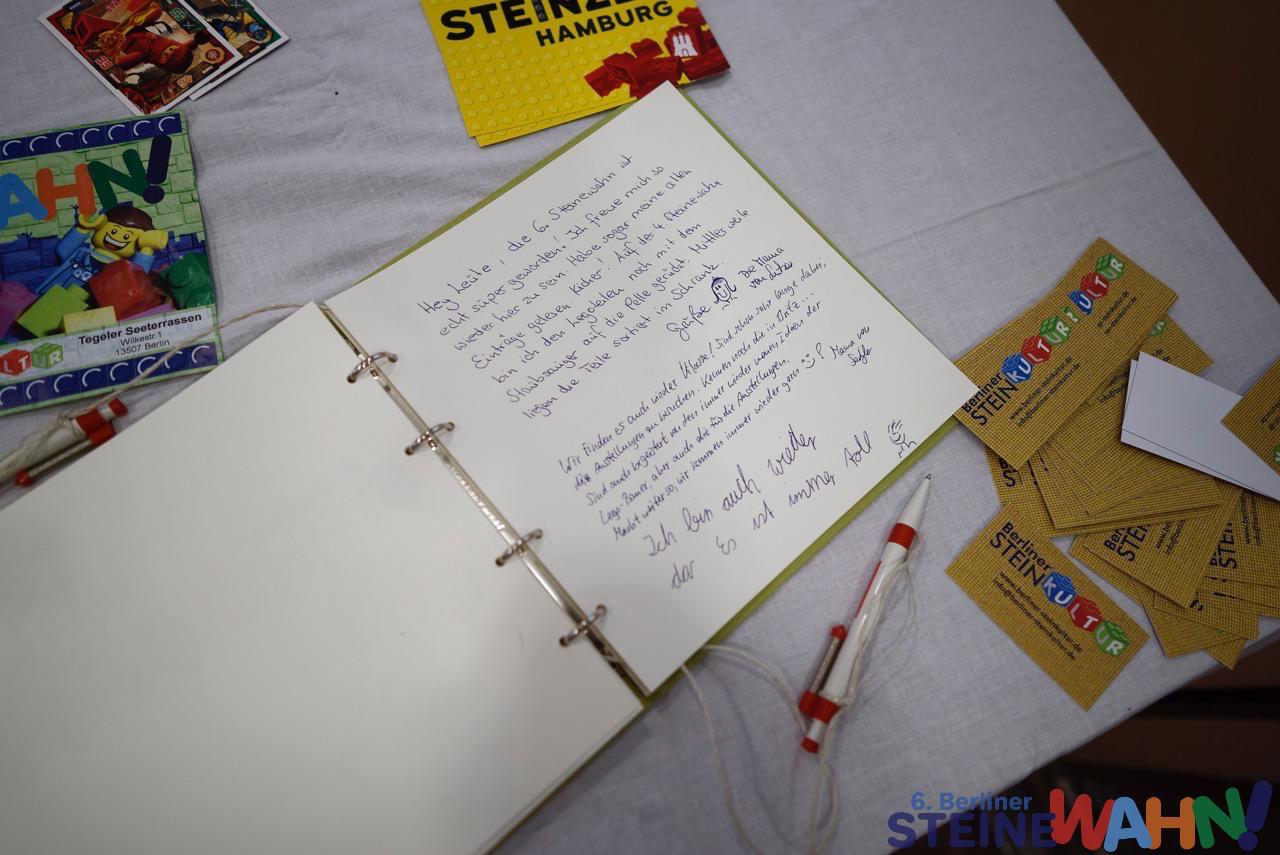 STEINZE
HAMBURG
WAHN!
Tegeler Seeterrassen
Wilkestr.1
13507 Berlin
LTUR
Hey Leute, die 6. Steinewahn ist
echt super geworden! Ich freue mich so
wieder hier zu sein. Habe sogar meine alten
Einträge gelesen. Auf der 4. Steinewahn
bin ich den Legoleiten noch mit dem
Staubsauger auf die Pelle gerückt. Mittlerweile
liegen die Teile sortiert im Schrank.
Grüße Die Mama
von
Wir finden es auch wieder Klasse! Sind schon sehr lange dabei,
die Ausstellungen zu besuchen. Kennen noch die in Britz...
Sind auch begeistert von den immer wieder neuen Ideen der
Lego-Bauer, aber auch die für die Ausstellungen.
Macht weiter so, wir kommen immer wieder gern ☺! Mama von
Ich bin auch wieder
dar Es ist immer toll
Berliner
STEINKULTUR
www.berliner-steinkultur.de
info@berliner-steinkultur.de
Berliner
STEINKULTUR
www.berliner-steinkultur.de
info@berliner-steinkultur.de
6. Berliner
STEINEWAHN!